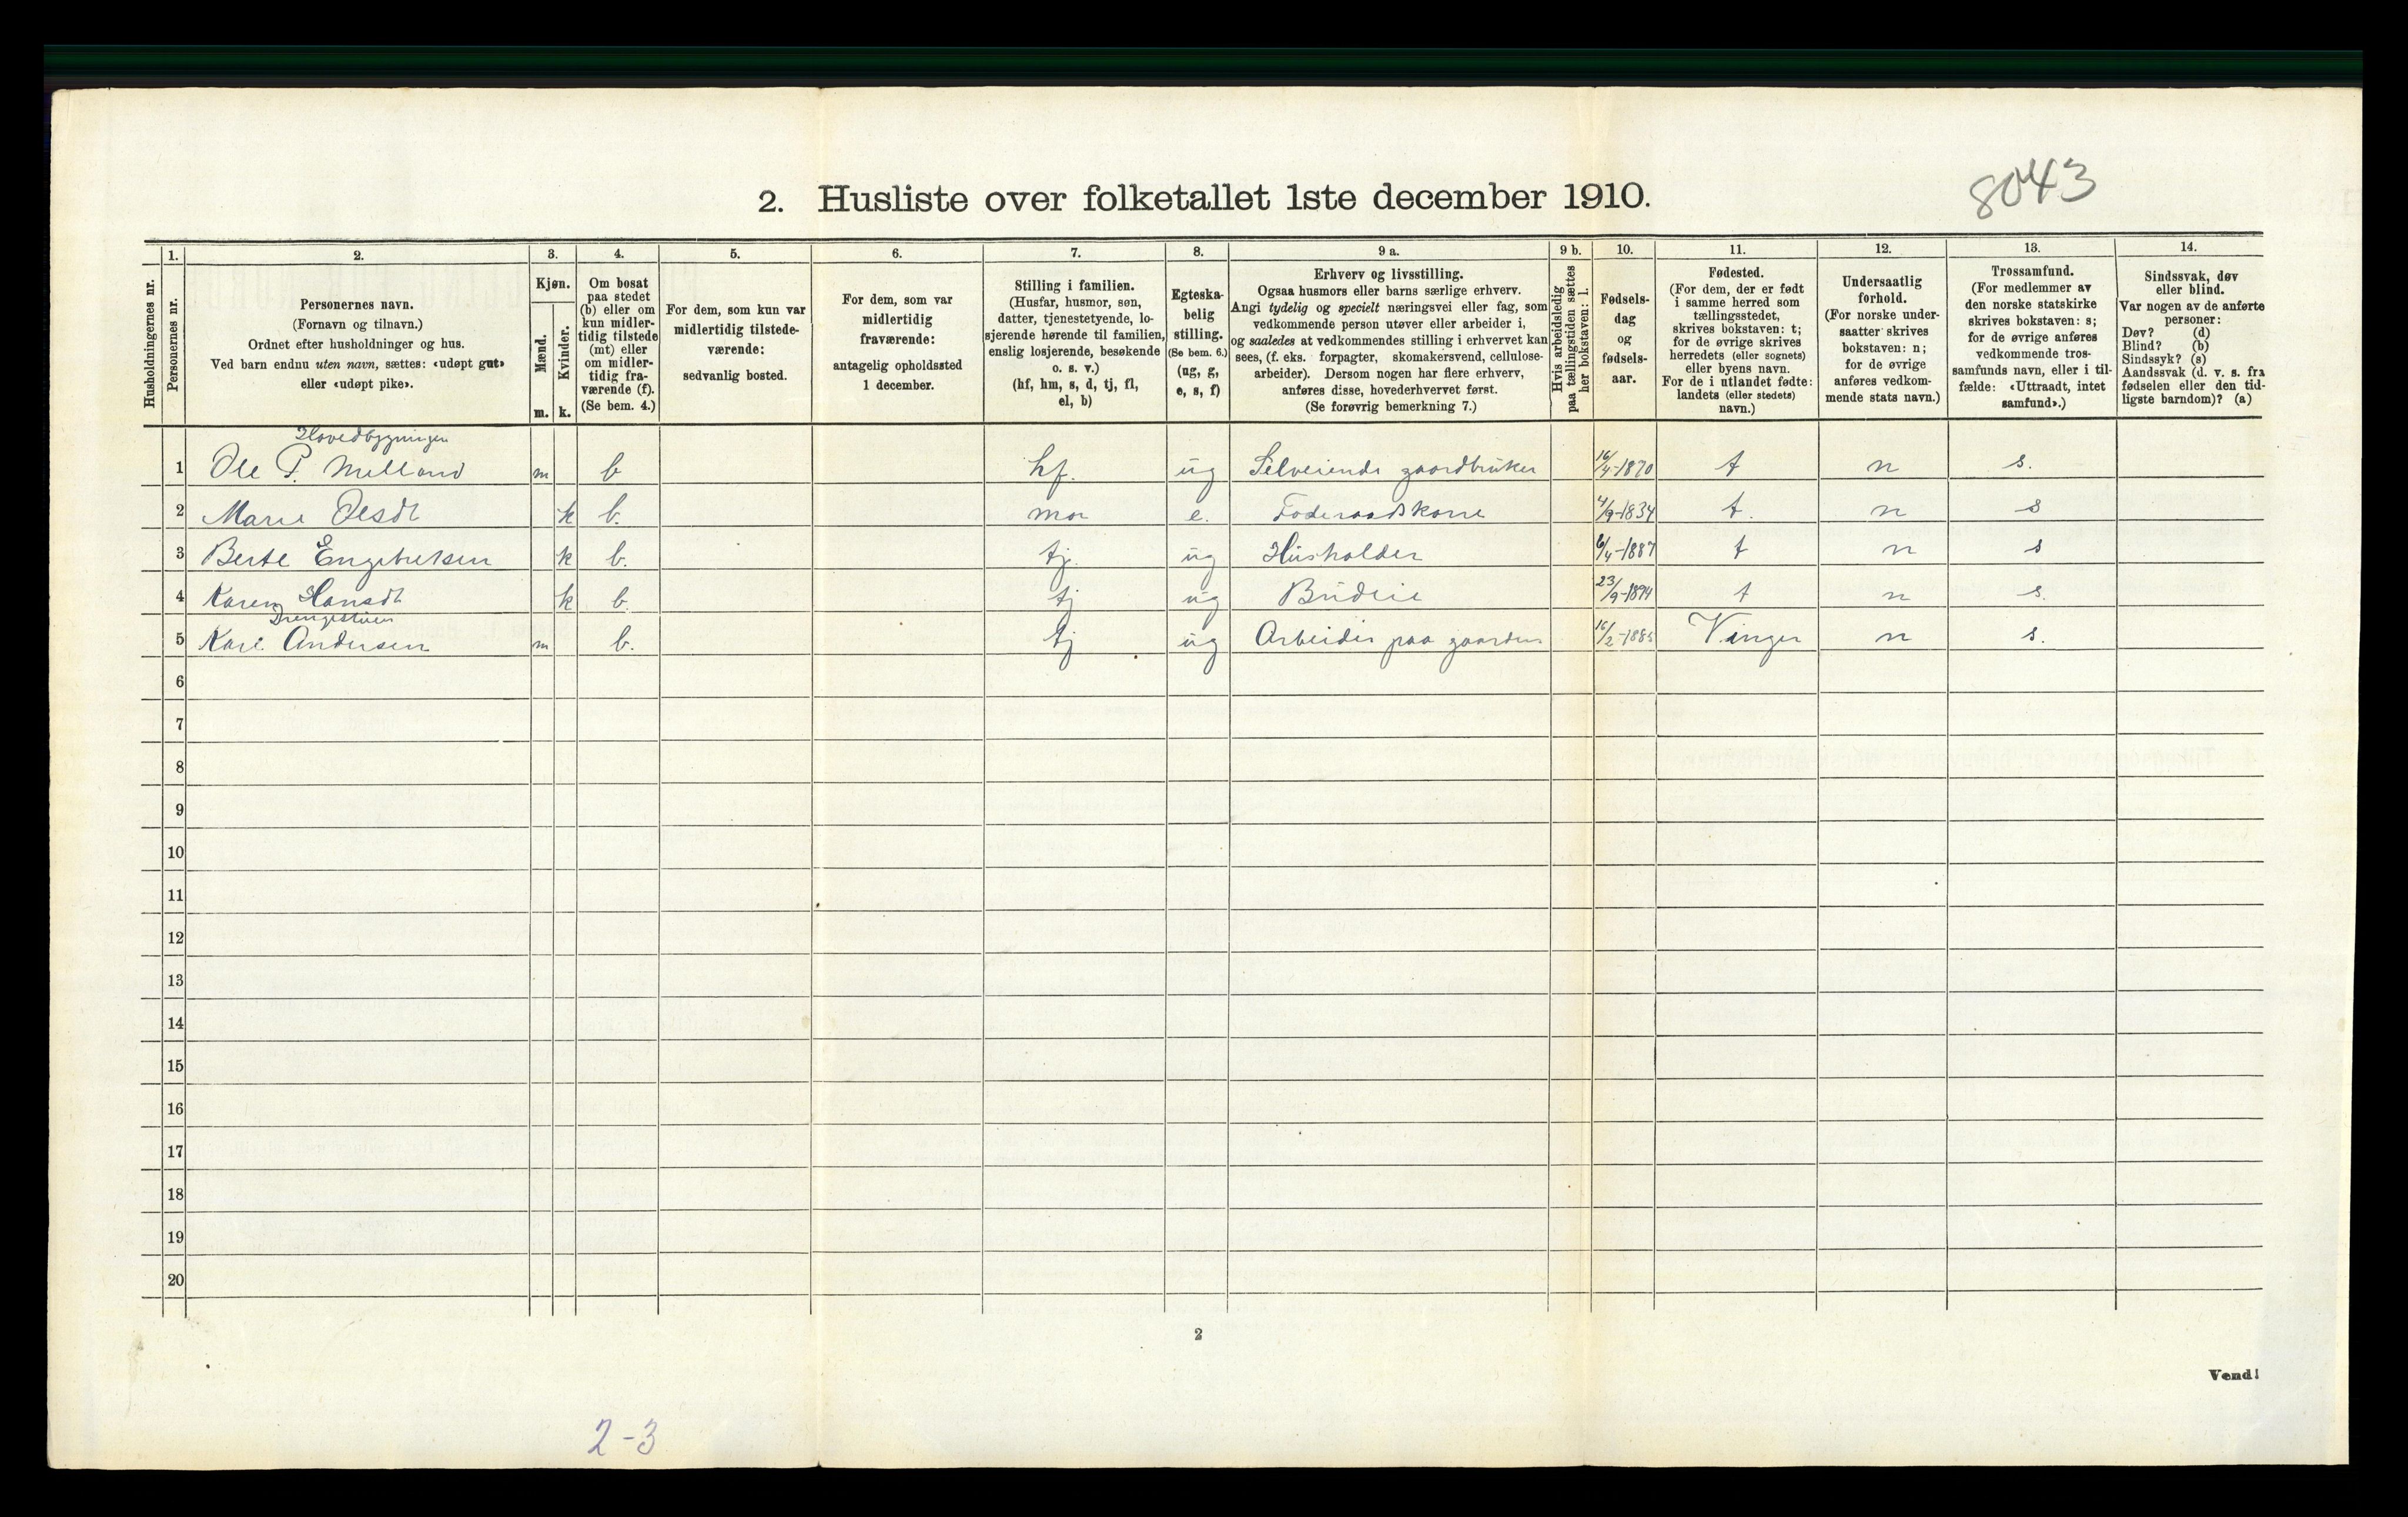 8043
2. Husliste over folketallet 1ste december 1910.
Husholdningernes nr.
1. Personernes nr.
2. Personernes navn.
(Fornavn og tilnavn.)
Ordnet efter husholdninger og hus.
Ved barn endnu uten navn, sættes: «udøpt gut»
eller «udøpt pike».
3. Kjøn.
Mænd. m.
Kvinder. k.
4. Om bosat
paa stedet
(b) eller om
kun midler-
tidig tilstede
(mt) eller
om midler-
tidig fra-
værende (f).
(Se bem. 4.)
5. For dem, som kun var
midlertidig tilstede-
værende:
sedvanlig bosted.
6. For dem, som var
midlertidig
fraværende:
antagelig opholdssted
1 december.
7. Stilling i familien.
(Husfar, husmor, søn,
datter, tjenestetyende, lo-
sjerende hørende til familien,
enslig losjerende, besøkende
o. s. v.)
(hf, hm, s, d, tj, fl,
el, b)
8. Egteska-
belig
stilling.
(Se bem. 6.)
(ug, g,
e, s, f)
9 a. Erhverv og livsstilling.
Ogsaa husmors eller barns særlige erhverv.
Angi tydelig og specielt næringsvei eller fag, som
vedkommende person utøver eller arbeider i,
og saaledes at vedkommendes stilling i erhvervet kan
sees, (f. eks. forpagter, skomakersvend, cellulose-
arbeider). Dersom nogen har flere erhverv,
anføres disse, hovederhvervet først.
(Se forøvrig bemerkning 7.)
9 b. Hvis arbeidsledig
paa tællingstiden sættes
her bokstaven: l.
10. Fødsels-
dag
og
fødsels-
aar.
11. Fødested.
(For dem, der er født
i samme herred som
tællingsstedet,
skrives bokstaven: t;
for de øvrige skrives
herredets (eller sognets)
eller byens navn.
For de i utlandet fødte:
landets (eller stedets)
navn.)
12. Undersaatlig
forhold.
(For norske under-
saatter skrives
bokstaven: n;
for de øvrige
anføres vedkom-
mende stats navn.)
13. Trossamfund.
(For medlemmer av
den norske statskirke
skrives bokstaven: s;
for de øvrige anføres
vedkommende tros-
samfunds navn, eller i til-
fælde: «Uttraadt, intet
samfund».)
14. Sindssvak, døv
eller blind.
Var nogen av de anførte
personer:
Døv? (d)
Blind? (b)
Sindssyk? (s)
Aandssvak (d. v. s. fra
fødselen eller den tid-
ligste barndom)? (a)
Hovedbygningen
1 Ole P. Melland m b hf. ug Selveiende gaardbruker 16/4-1870 t n s.
2 Marie Olesdt k b. mor e. Foderaadskone 4/9-1834 t. n s
3 Berte Engebretsen k b. tj. ug Husholder 6/4-1887 t n s
4 Karen Hansdt k b. tj ug Budeie 23/9-1894 t n s.
Drengestuen
5 Kari Andersen m b. tj ug Arbeider paa gaarden 16/2-1885 Vinger n s.
6
7
8
9
10
11
12
13
14
15
16
17
18
19
20
2
Vend!
2-3